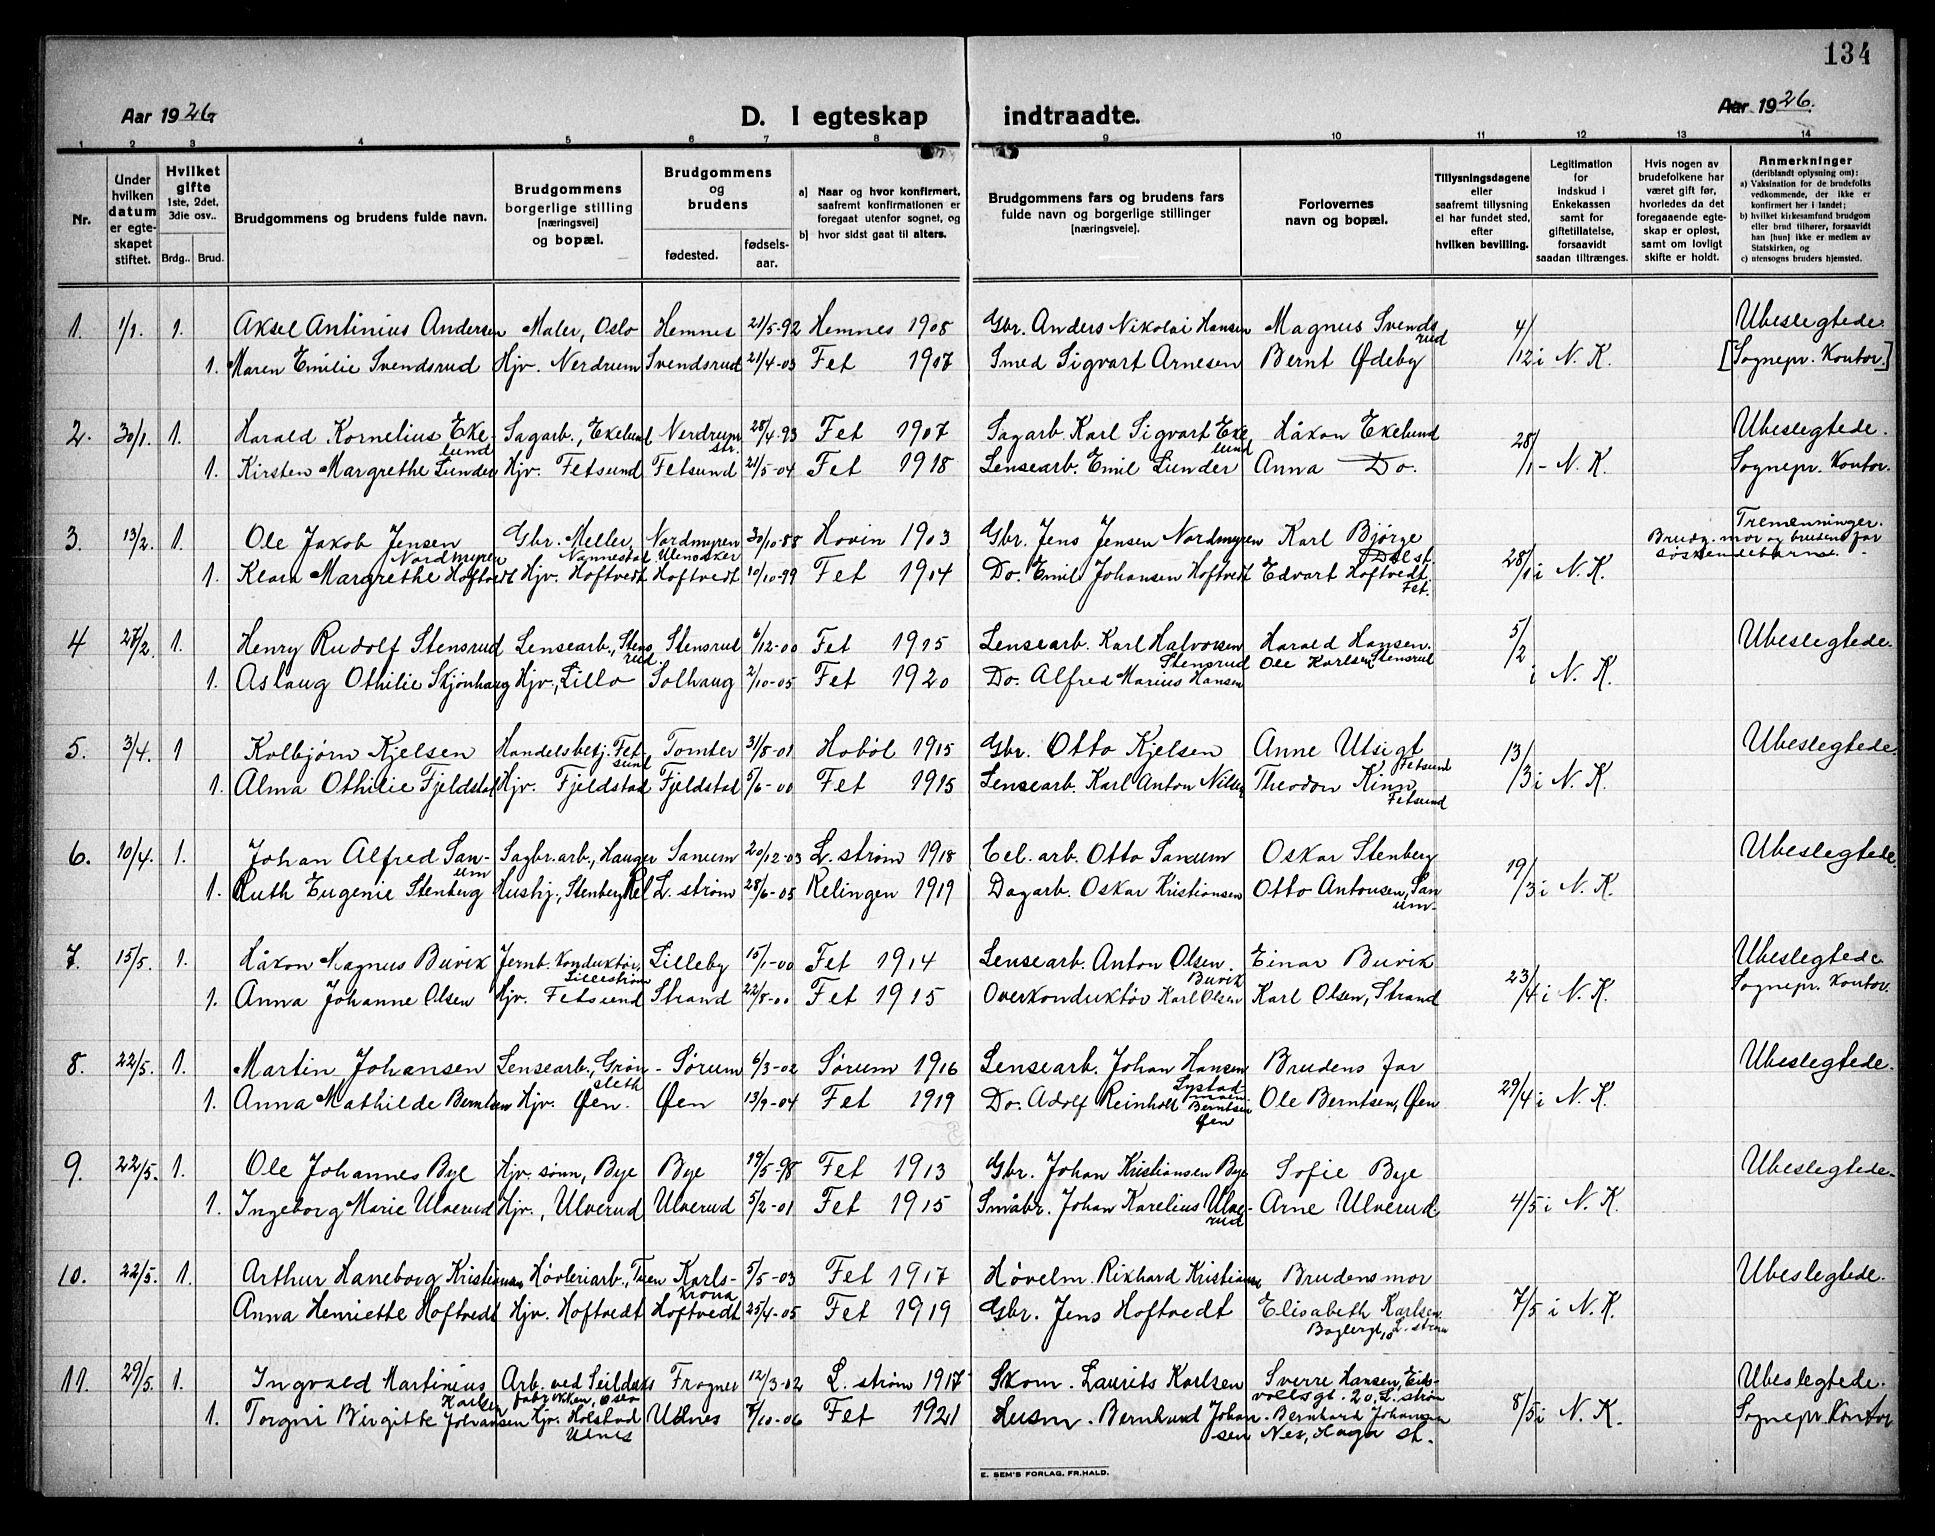 134
Aar 1926
D. I egteskap indtraadte.
Aar 1926.
1 2 3 4 5 6 7 8 9 10 11 12 13 14
Nr.
Under hvilken datum er egteskapet stiftet.
Hvilket gifte 1ste, 2det, 3die osv..
Brdg.. Brud.
Brudgommens og brudens fulde navn.
Brudgommens borgerlige stilling [næringsvei] og bopæl.
Brudgommens og brudens
fødested. fødselsaar.
a) Naar og hvor konfirmert, saafremt konfirmationen er foregaat utenfor sognet, og
b) hvor sidst gaat til alters.
Brudgommens fars og brudens fars fulde navn og borgerlige stillinger [næringsveie].
Forlovernes navn og bopæl.
Tillysningsdagene eller saafremt tillysning ei har fundet sted, efter hvilken bevilling.
Legitimation for indskud i Enkekassen samt for giftetillatelse, forsaavidt saadan tiltrænges.
Hvis nogen av brudefolkene har været gift før, hvorledes da det foregaaende egteskap er opløst, samt om lovligt skifte er holdt.
Anmerkninger (deriblandt oplysning om):
a) Vaksination for de brudefolks vedkommende, der ikke er konfirmert her i landet;
b) hvilket kirkesamfund brudgom eller brud tilhører, forsaavidt han [hun] ikke er medlem av Statskirken, og
c) utensogns bruders hjemsted.
1. 1/1. 1. Aksel Antinius Andersen Maler, Oslo Hemnes 21/5-92 Hemnes 1908 Gbr. Anders Nikolai Hansen Magnus Svendsrud 4/ Ubeslegtede.
1. Maren Emilie Svendsrud Hjv. Nerdrum Svendsrud 21/4-03 Fet 1907 Smed Sigvart Arnesen Bernt Ødeby /12 i N. K. [Sognepr. Kontor.]
2. 30/1. 1. Harald Kornelius Ekelund Sagarb., Ekelund Nerdrum str. 28/4-93 Fet 1907 Sagarb. Karl Sigvart Ekelund Håkon Ekelund 28/ Ubeslegtede.
1. Kirsten Margrethe Lunder Hjv. Fetsund Fetsund 21/5-04 Fet 1918 Lensearb. Emil Lunder Anna Do. /1 - N. K. Sognepr. Kontor.
3. 13/2. 1. Ole Jakob Jensen Nordmyren Gbr. Meller, Nannestad Nordmyren Ulensaker 30/10-88 Hovin 1903 Gbr. Jens Jensen Nordmyren Karl Bjørge Dal st. Tremenninger. Brudg. mor og brudens far søskendebarn.
1. Klara Margrethe Hoftvedt Hjv. Hoftvedt Hoftvedt 10/10-99 Fet 1914 Do. Emil Johansen Hoftvedt Edvart Hoftvedt. Fet. 28/1 i N. K.
4 27/2. 1. Henry Rudolf Stensrud Lensearb., Stensrud Stensrud 6/12-00 Fet 1915 Lensearb. Karl Halvorsen Stensrud Harald Hansen. 5/2 Ubeslegtede.
1. Aslaug Othilie Skjønhaug Hjv., Lillo Solhaug 2/10-05 Fet 1920 Do. Alfred Marius Hansen Ole Karlsen, Stensrud i N. K.
5. 3/4. 1 Kolbjørn Kjelsen Handelsbetj. Fetsund Tomter 31/8-01 Hobøl 1915 Gbr. Otto Kjelsen Anne Utsigt Fetsund 13/ Ubeslegtede.
1. Alma Othilie Fjeldstad Hjv. Fjeldstad Fjeldstad 5/6-00 Fet 1915 Lensearb. Karl Anton Nilsen Theodor Kinn, Fetsund /3 i N. K.
6. 10/4. 1. Johan Alfred Sanum Sagbr.arb., Hauger Sanum 20/12-03 L. strøm 1918 Cel. arb. Otto Sanum Oskar Stenberg 19/ Ubeslegtede.
1. Ruth Eugenie Stenberg Hushj., Stenberg Rel L. strøm 28/6-05 Relingen 1919 Dagarb. Oskar Kristiansen Otto Antonsen, Sanum. /3 i N. K.
7. 15/5. 1. Håkon Magnus Buvik Jernb. Konduktør, Lillestrøm Lilleby 15/1-00 Fet 1914 Lensearb. Anton Olsen. Buvik Einar Buvik 23/ Ubeslegtede
1. Anna Johanne Olsen Hjv. Fetsund Strand 22/8-00 Fet 1915 Overkonduktør Karl Olsen Karl Olsen, Strand /4 i N. K. Sognepr. Kontor.
8. 22/5. 1. Martin Johansen Lensearb., Grønsleth Sørum 6/3-02 Sørum 1916 Lensearb. Johan Hansen Brudens far Ubeslegtede.
1. Anna Mathilde Berntsen Hjv. Øen. Øen 13/9-04 Fet 1919 Do. Adolf Reinholt Berntsen Øen Ole Berntsen, Øen 29/4 i N. K.
9. 22/5. 1. Ole Johannes Bye Hjv. sønn, Bye Bye 19/5-98 Fet 1913 Gbr. Johan Kristiansen Bye Sofie Bye Ubeslegtede.
1. Ingeborg Marie Ulverud Hjv., Ulverud Ulverud 5/2-01 Fet 1915 Småbr. Johan Karelius Ulverud Arne Ulverud. 4/5 i N. K.
10. 22/5. 1. Arthur Haneborg Kristiansen Høvleriarb., Tuen Karlskrona 5/5-03 Fet 1917 Høvelm. Rikhard Kristiansen Brudens mor Ubeslegtede.
Anna Henriette Hoftvedt Hjv. Hoftvedt Hoftvedt 25/4-05 Fet 1919 Gbr. Jens Hoftvedt Elisabeth Karlsen L. strøm 7/5 i N. K.
11. 29/5. 1. Ingvald Martinius Karlsen Arb. ved Seilduksfabrikken, Oslo Frogner 12/3-02 L. strøm 1917 Skom. Laurits Karlsen Sverre Hansen, Eidsvollsgt. 20, L. strøm Ubeslegtede.
1. Torgni Birgitte Johansen Hjv. Holstad Udnes Udnes 7/10-06 Fet 1921 Husm. Bernhard Johansen Bernhard Johansen Nes, Haga st. 8/5 i N. K. Sognepr. Kontor
E. SEM'S FORLAG, FR.HALD.